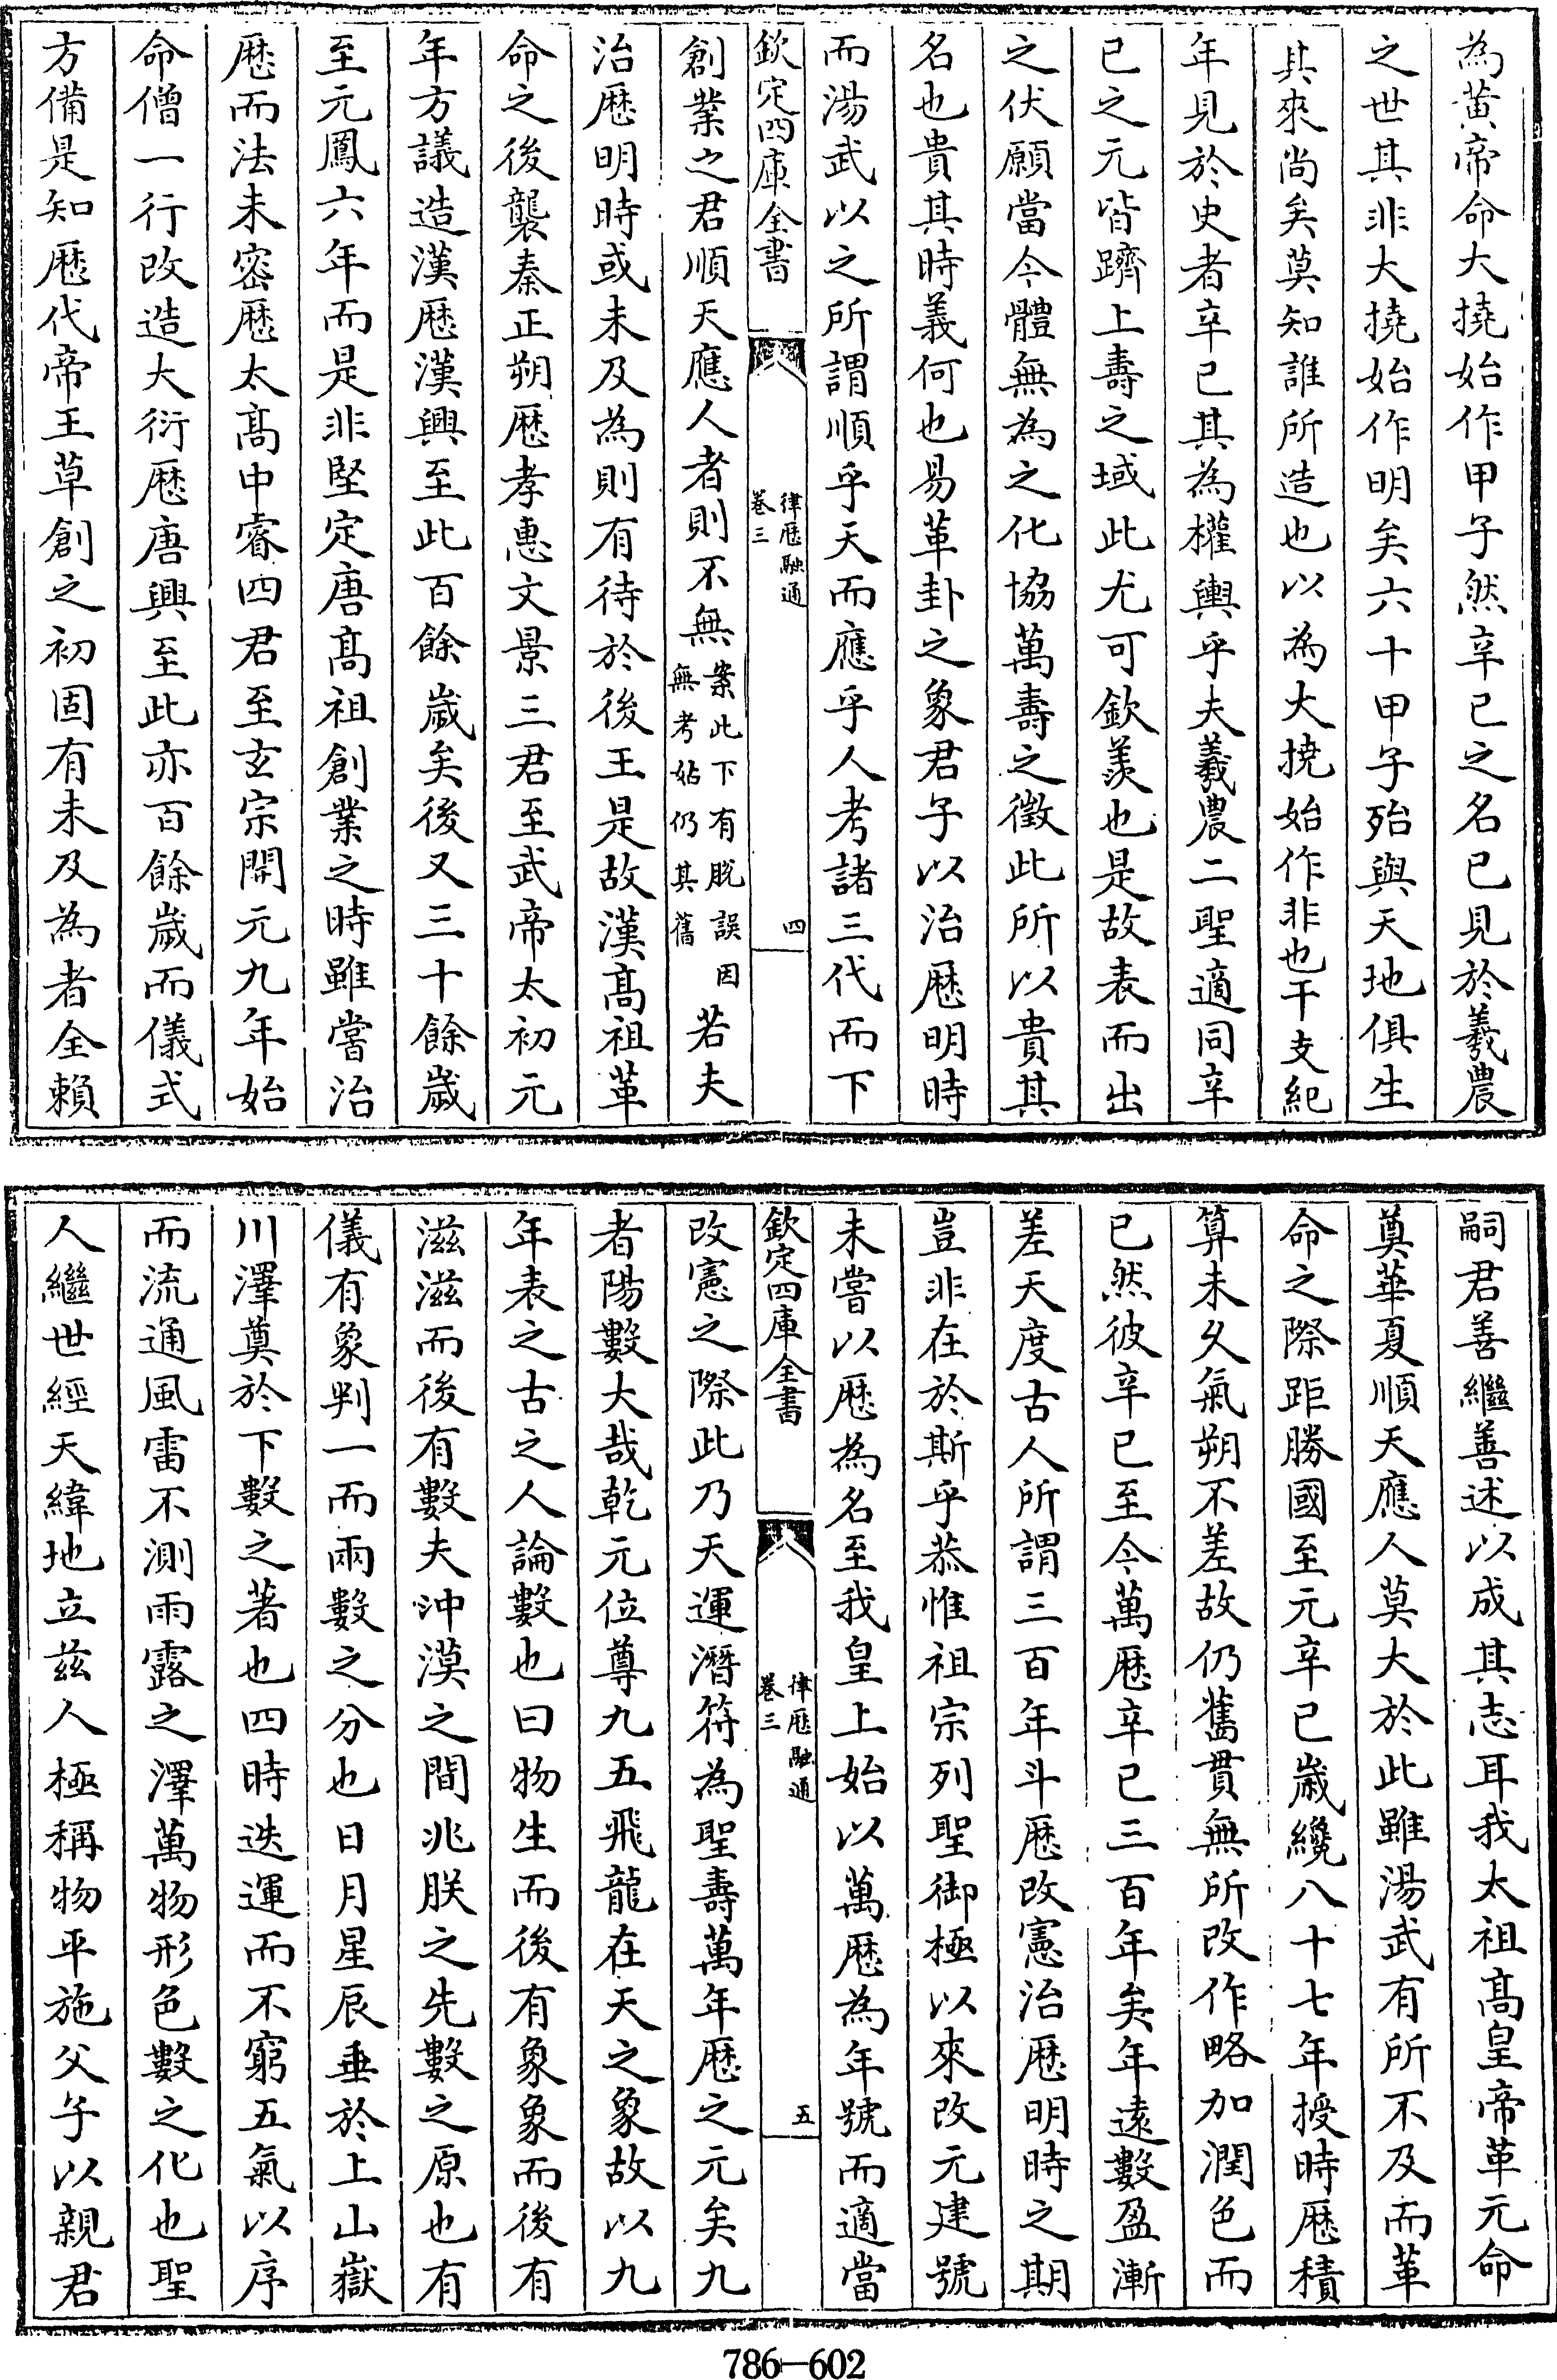 為黄帝命大撓始作甲子然辛巳之名已見於羲農
之世其非大撓始作明矣六十甲子殆與天地俱生
其來尚矣莫知誰所造也以為大撓始作非也干支紀
年見於史者辛巳其為權輿乎夫羲農二聖適同辛
巳之元皆躋上壽之域此尤可欽羨也是故表而出
之伏願當今體無為之化協萬壽之徵此所以貴其
名也貴其時義何也易革卦之象君子以治厯明時
而湯武以之所謂順乎天而應乎人考諸三代而下
欽定四庫全書
律厯融通
卷三
四
創業之君順天應人者則不無案此下有脱誤因無考姑仍其舊若夫
治厯明時或未及為則有待於後王是故漢高祖革
命之後襲秦正朔厯孝惠文景三君至武帝太初元
年方議造漢厯漢興至此百餘歲矣後又三十餘歲
至元鳳六年而是非堅定唐高祖創業之時雖嘗治
厯而法未密厯太高中睿四君至玄宗開元九年始
命僧一行改造大衍厯唐興至此亦百餘歲而儀式
方備是知厯代帝王草創之初固有未及為者全賴
嗣君善繼善述以成其志耳我太祖高皇帝革元命
奠華夏順天應人莫大於此雖湯武有所不及而革
命之際距勝國至元辛巳歲纔八十七年授時厯積
算未久氣朔不差故仍舊貫無所改作略加潤色而
已然彼辛巳至今萬厯辛巳三百年矣年遠數盈漸
差天度古人所謂三百年斗厯改憲治厯明時之期
豈非在於斯乎恭惟祖宗列聖御極以來改元建號
未嘗以厯為名至我皇上始以萬厯為年號而適當
欽定四庫全書
律厯融通
卷三
五
改憲之際此乃天運潛符為聖壽萬年厯之元矣九
者陽數大哉乾元位尊九五飛龍在天之象故以九
年表之古之人論數也曰物生而後有象象而後有
滋滋而後有數夫沖漠之間兆朕之先數之原也有
儀有象判一而兩數之分也日月星辰垂於上山嶽
川澤奠於下數之著也四時迭運而不窮五氣以序
而流通風雷不測雨露之澤萬物形色數之化也聖
人繼世經天緯地立茲人極稱物平施父子以親君
786—602